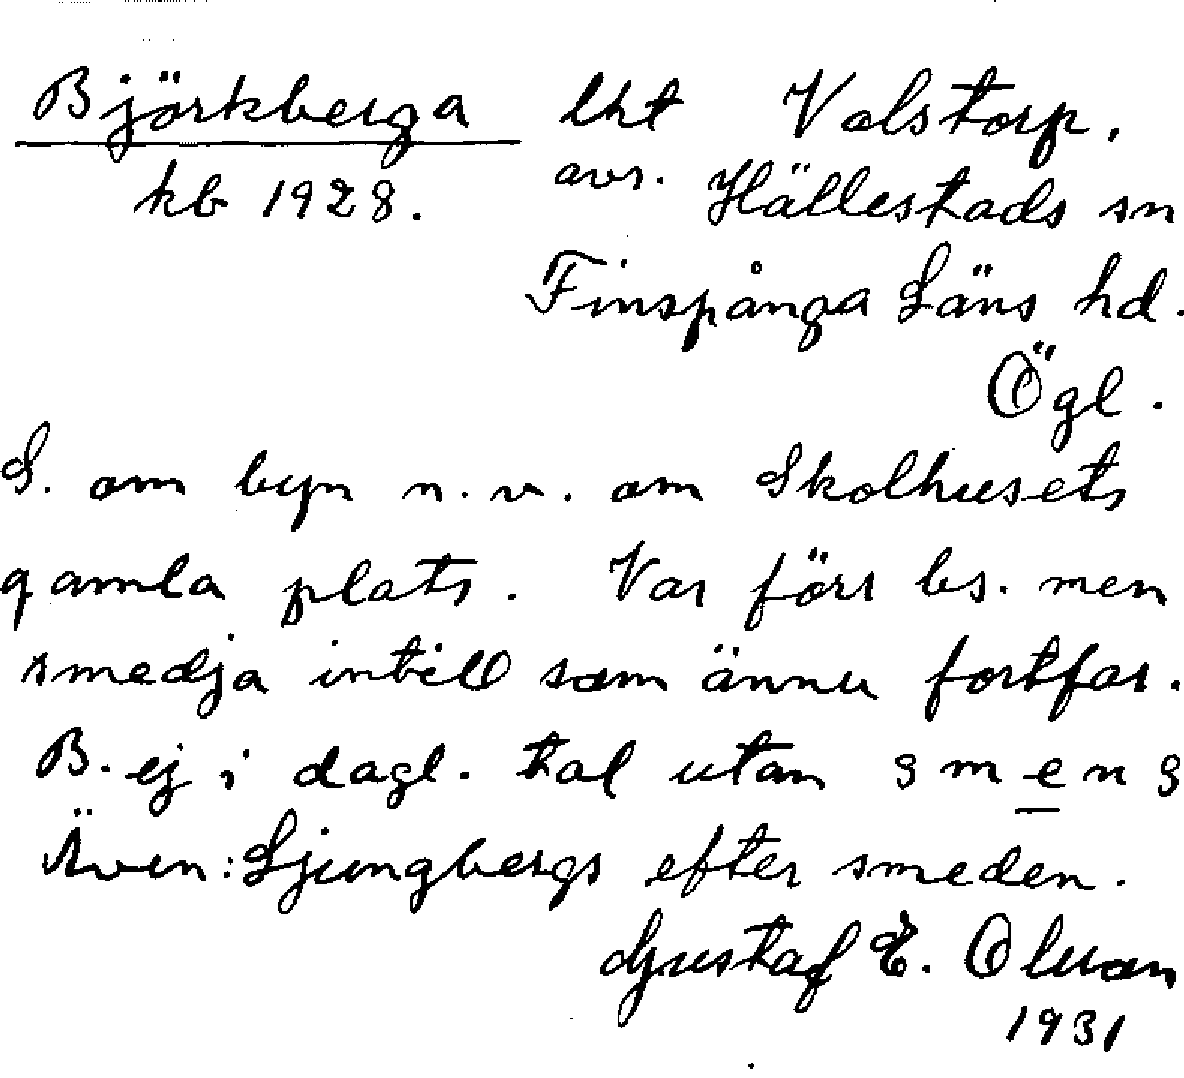 Björkberga lht Valstorp.
kb 1928. avs. Hällestads sn
Finspånga Läns hd.
Ögl.
S. om byn n.v. om Skolhusets
gamla plats. Var förr bs. men
smedja intill som ännu fortfar.
B. ej i dagl. tal utan smens
Även: Ljungbergs efter smeden.
Gustaf E.
1931